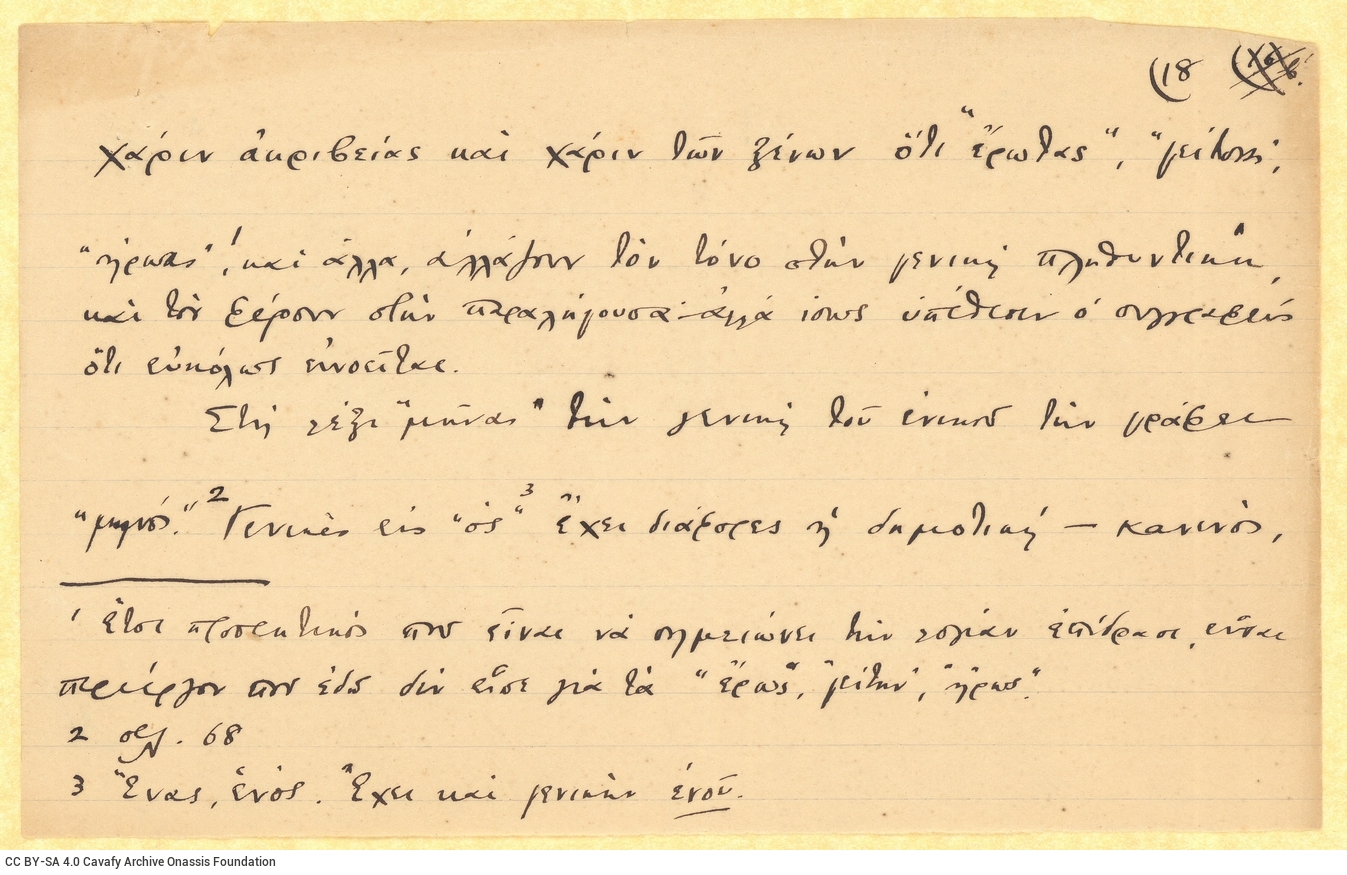 (18
χάριν ἀκριβείας καὶ χάριν τῶν ξένων ὅτι "ἔρωτας", "γείτονας",
"ἥρωας",¹ καὶ ἄλλα, ἀλλάζουν τὸν τόνο στὴν γενικὴ πληθυντικὴ,
καὶ τὸν φέρουν στὴν παραλήγουσα· ἀλλὰ ἴσως ὑπέθεσεν ὁ συγγραφεὺς
ὅτι εὐκόλως ἐννοεῖται.
Στὴ λέξι "μῆνας" τὴν γενικὴ τοῦ ἑνικοῦ τὴν γράφει
"μηνός".² Γενικὲς εἰς "ὸς"³ ἔχει διάφορες ἡ δημοτικὴ — κανενὸς,
1 Ἔτσι προσεκτικὸς ποῦ εἶναι νὰ σημειώνει τὴν λογίαν ἐπίδρασι, εἶναι
περίεργον ποῦ ἐδῶ δὲν εἶπε γιὰ τὰ "ἔρως", "γείτων", "ἥρως".
2 σελ. 68
3 Ἕνας, ἑνός. Ἔχει καὶ γενικὴν ἑνοῦ.
CC BY-SA 4.0 Cavafy Archive Onassis Foundation